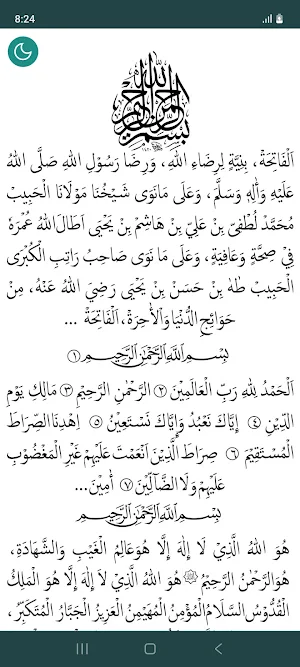 8:24
بِسْمِ اللهِ الرَّحْمٰنِ الرَّحِيْمِ
اَلْفَاتِحَةْ، بِنِيَّةٍ لِرِضَاءِ اللهِ، وَرِضَا رَسُوْلِ اللهِ صَلَّى اللهُ
عَلَيْهِ وَاٰلِهٖ وَسَلَّمَ، وَعَلَى مَانَوَى شَيْخُنَا مَوْلَانَا الْحَبِيْبْ
مُحَمَّدْ لُطْفِىْ بِنْ عَلِيْ بِنْ هَاشِمْ بِنْ يَحْيَى اَطَالَ اللهُ عُمْرَهٗ
فِيْ صِحَّةٍ وَعَافِيَةٍ، وَعَلَى مَا نَوَى صَاحِبُ رَاتِبِ الْكُبْرَى
الْحَبِيْبْ طٰهٰ بِنْ حَسَنْ بِنْ يَحْيَى رَضِيَ اللهُ عَنْهُ، مِنْ
حَوَائِجِ الدُّنْيَا وَالْأٰخِرَةْ، اَلْفَاتِحَةْ ...
بِسْمِ اللهِ الرَّحْمٰنِ الرَّحِيْمِ ١
اَلْحَمْدُ لِلّٰهِ رَبِّ الْعَالَمِيْنَ ٢ الرَّحْمٰنِ الرَّحِيْمِ ٣ مَالِكِ يَوْمِ
الدِّيْنِ ٤ إِيَّاكَ نَعْبُدُ وَإِيَّاكَ نَسْتَعِيْنُ ٥ اِهْدِنَا الصِّرَاطَ
الْمُسْتَقِيْمَ ٦ صِرَاطَ الَّذِيْنَ اَنْعَمْتَ عَلَيْهِمْ غَيْرِ الْمَغْضُوْبِ
عَلَيْهِمْ وَلَا الضَّآلِّيْنَ ٧ اٰمِيْنَ...
بِسْمِ اللهِ الرَّحْمٰنِ الرَّحِيْمِ
هُوَ اللهُ الَّذِيْ لَا إِلٰهَ إِلَّا هُوَعَالِمُ الْغَيْبِ وَالشَّهَادَةِ،
هُوَالرَّحْمٰنُ الرَّحِيْمُ هُوَ اللهُ الَّذِيْ لَا إِلٰهَ إِلَّا هُوَ الْمَلِكُ
الْقُدُّوْسُ السَّلَامُ الْمُؤْمِنُ الْمُهَيْمِنُ الْعَزِيْزُ الْجَبَّارُ الْمُتَكَبِّرُ،